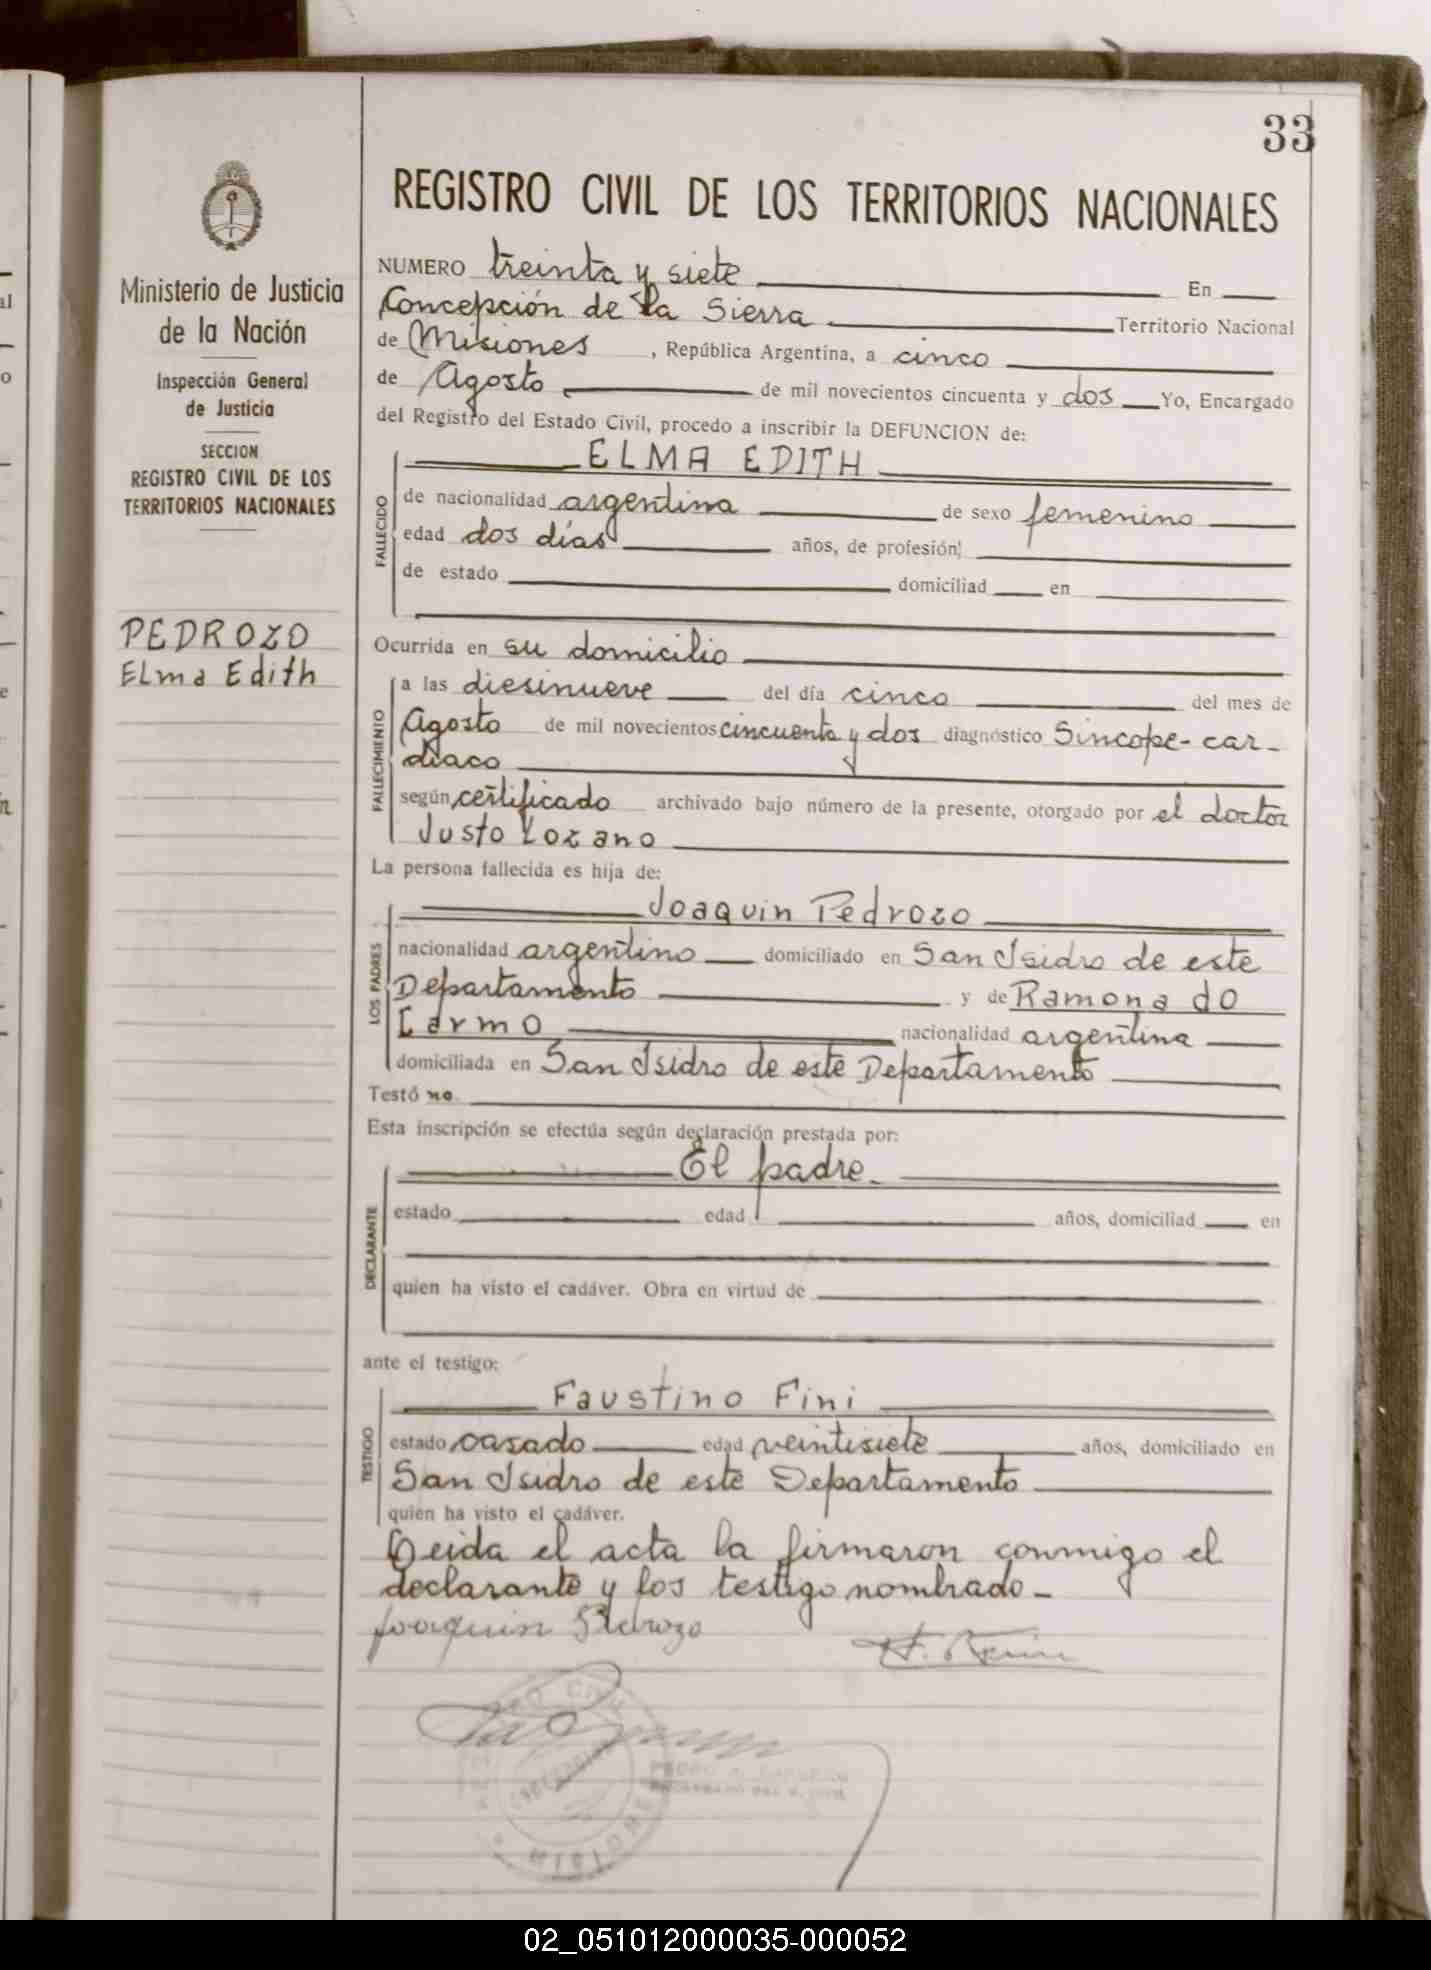 33
Ministerio de Justicia
de la Nación
Inspección General
de Justicia
SECCION
REGISTRO CIVIL DE LOS
TERRITORIOS NACIONALES
PEDROZO
Elma Edith
REGISTRO CIVIL DE LOS TERRITORIOS NACIONALES
NUMERO treinta y siete En
Concepción de la Sierra Territorio Nacional
de Misiones , República Argentina, a cinco
de Agosto de mil novecientos cincuenta y dos Yo, Encargado
del Registro del Estado Civil, procedo a inscribir la DEFUNCION de:
ELMA EDITH
FALLECIDO
de nacionalidad argentina de sexo femenino
edad dos días años, de profesión
de estado domiciliad en
Ocurrida en su domicilio
FALLECIMIENTO
a las diesinueve del día cinco del mes de
Agosto de mil novecientos cincuenta y dos diagnóstico Sincope-car-
diaco
según certificado archivado bajo número de la presente, otorgado por el doctor
Justo Lozano
La persona fallecida es hija de:
Joaquin Pedrozo
LOS PADRES
nacionalidad argentino domiciliado en San Isidro de este
Departamento y de Ramona do
Carmo nacionalidad argentina
domiciliada en San Isidro de este Departamento
Testó no.
Esta inscripción se efectúa según declaración prestada por:
El padre.
DECLARANTE
estado edad años, domiciliad en
quien ha visto el cadáver. Obra en virtud de
ante el testigo:
Faustino Fini
TESTIGO
estado casado edad veintisiete años, domiciliado en
San Isidro de este Departamento
quien ha visto el cadáver.
Leida el acta la firmaron conmigo el
declarante y los testigo nombrado-
Joaquin Pedrozo
02_051012000035-000052